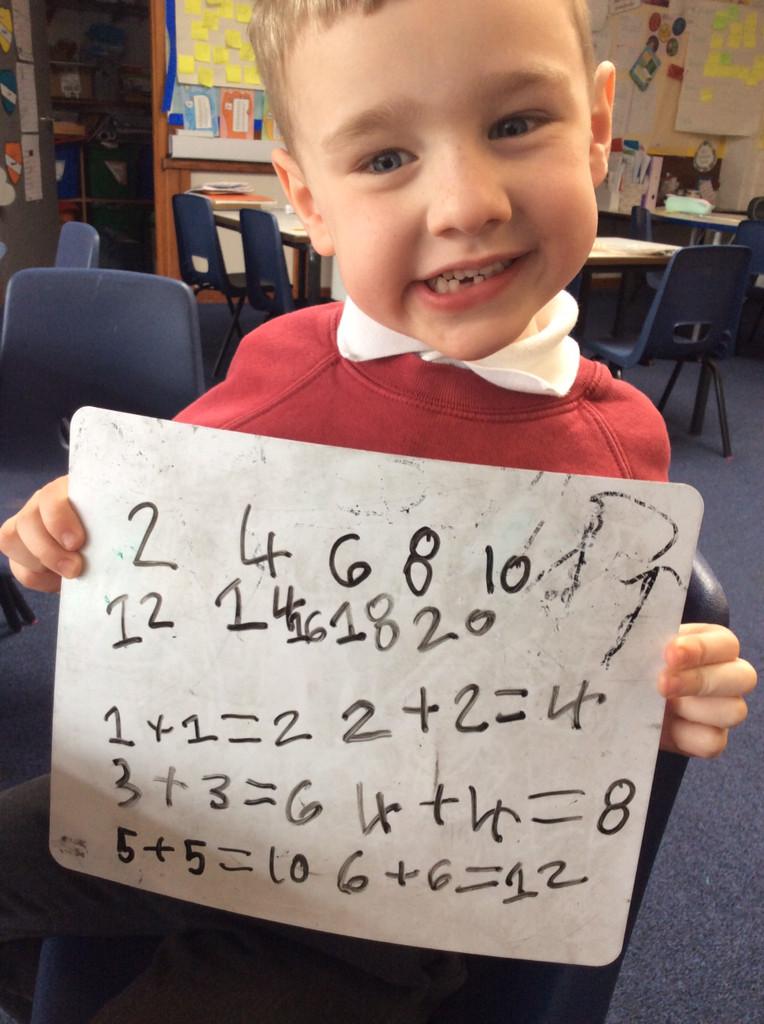 2 4 6 8 10
12 14 16 18 20
1+1=2 2+2=4
3+3=6 4+4=8
5+5=10 6+6=12